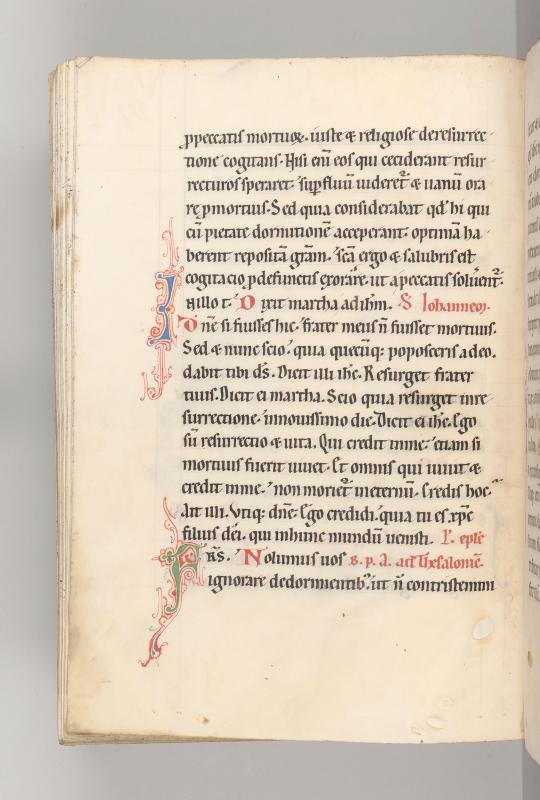 ppeccatis mortuoꝝ. iuste ⁊ religiose deresurrec
tione cogitans. Nisi eni̅ eos qui ceciderant resur
recturos speraret. sup̱fluu̅ uideret᷑ ⁊ uanu̅ ora
rę p mortuis. Sed quia considerabat qd̓ hi qui
cu̅ pietate dormitione̅ acceperant. optima̅ ha
berent reposita̅ gr̅am. Sc̅a ergo ⁊ salubris est
cogitacio p defunctis exorare. ut apeccatis soluent᷑.
In illo t. Dixit martha ad ih̅m. S. Iohannem.
Dn̅e si fuisses hic. frater meus n̅ fuisset mortuus.
Sed ⁊ nunc scio. quia quecu̅q; poposceris a deo.
dabit tibi ds̅. Dicit illi ih̅c. Resurget frater
tuus. Dicit ei martha. Scio quia resurget inre
surrectione. innouissimo die. Dicit ei ih̅c. Ego
su̅ resurrectio ⁊ uita. Qui credit inme. etiam si
mortuus fuerit uiuet. Et omnis qui uiuit ⁊
credit inme. non moriet᷑ ineternu̅. Credis hoc.
Ait illi. Utiq; dn̅e. Ego credidi. quia tu es xp̅c
filius dei. qui inhunc mundu̅ uenisti. L. eple
FRS. Nolumus uos b. p. a. ad Thesalonic̅.
ignorare dedormientib; ut n̅ contristemini